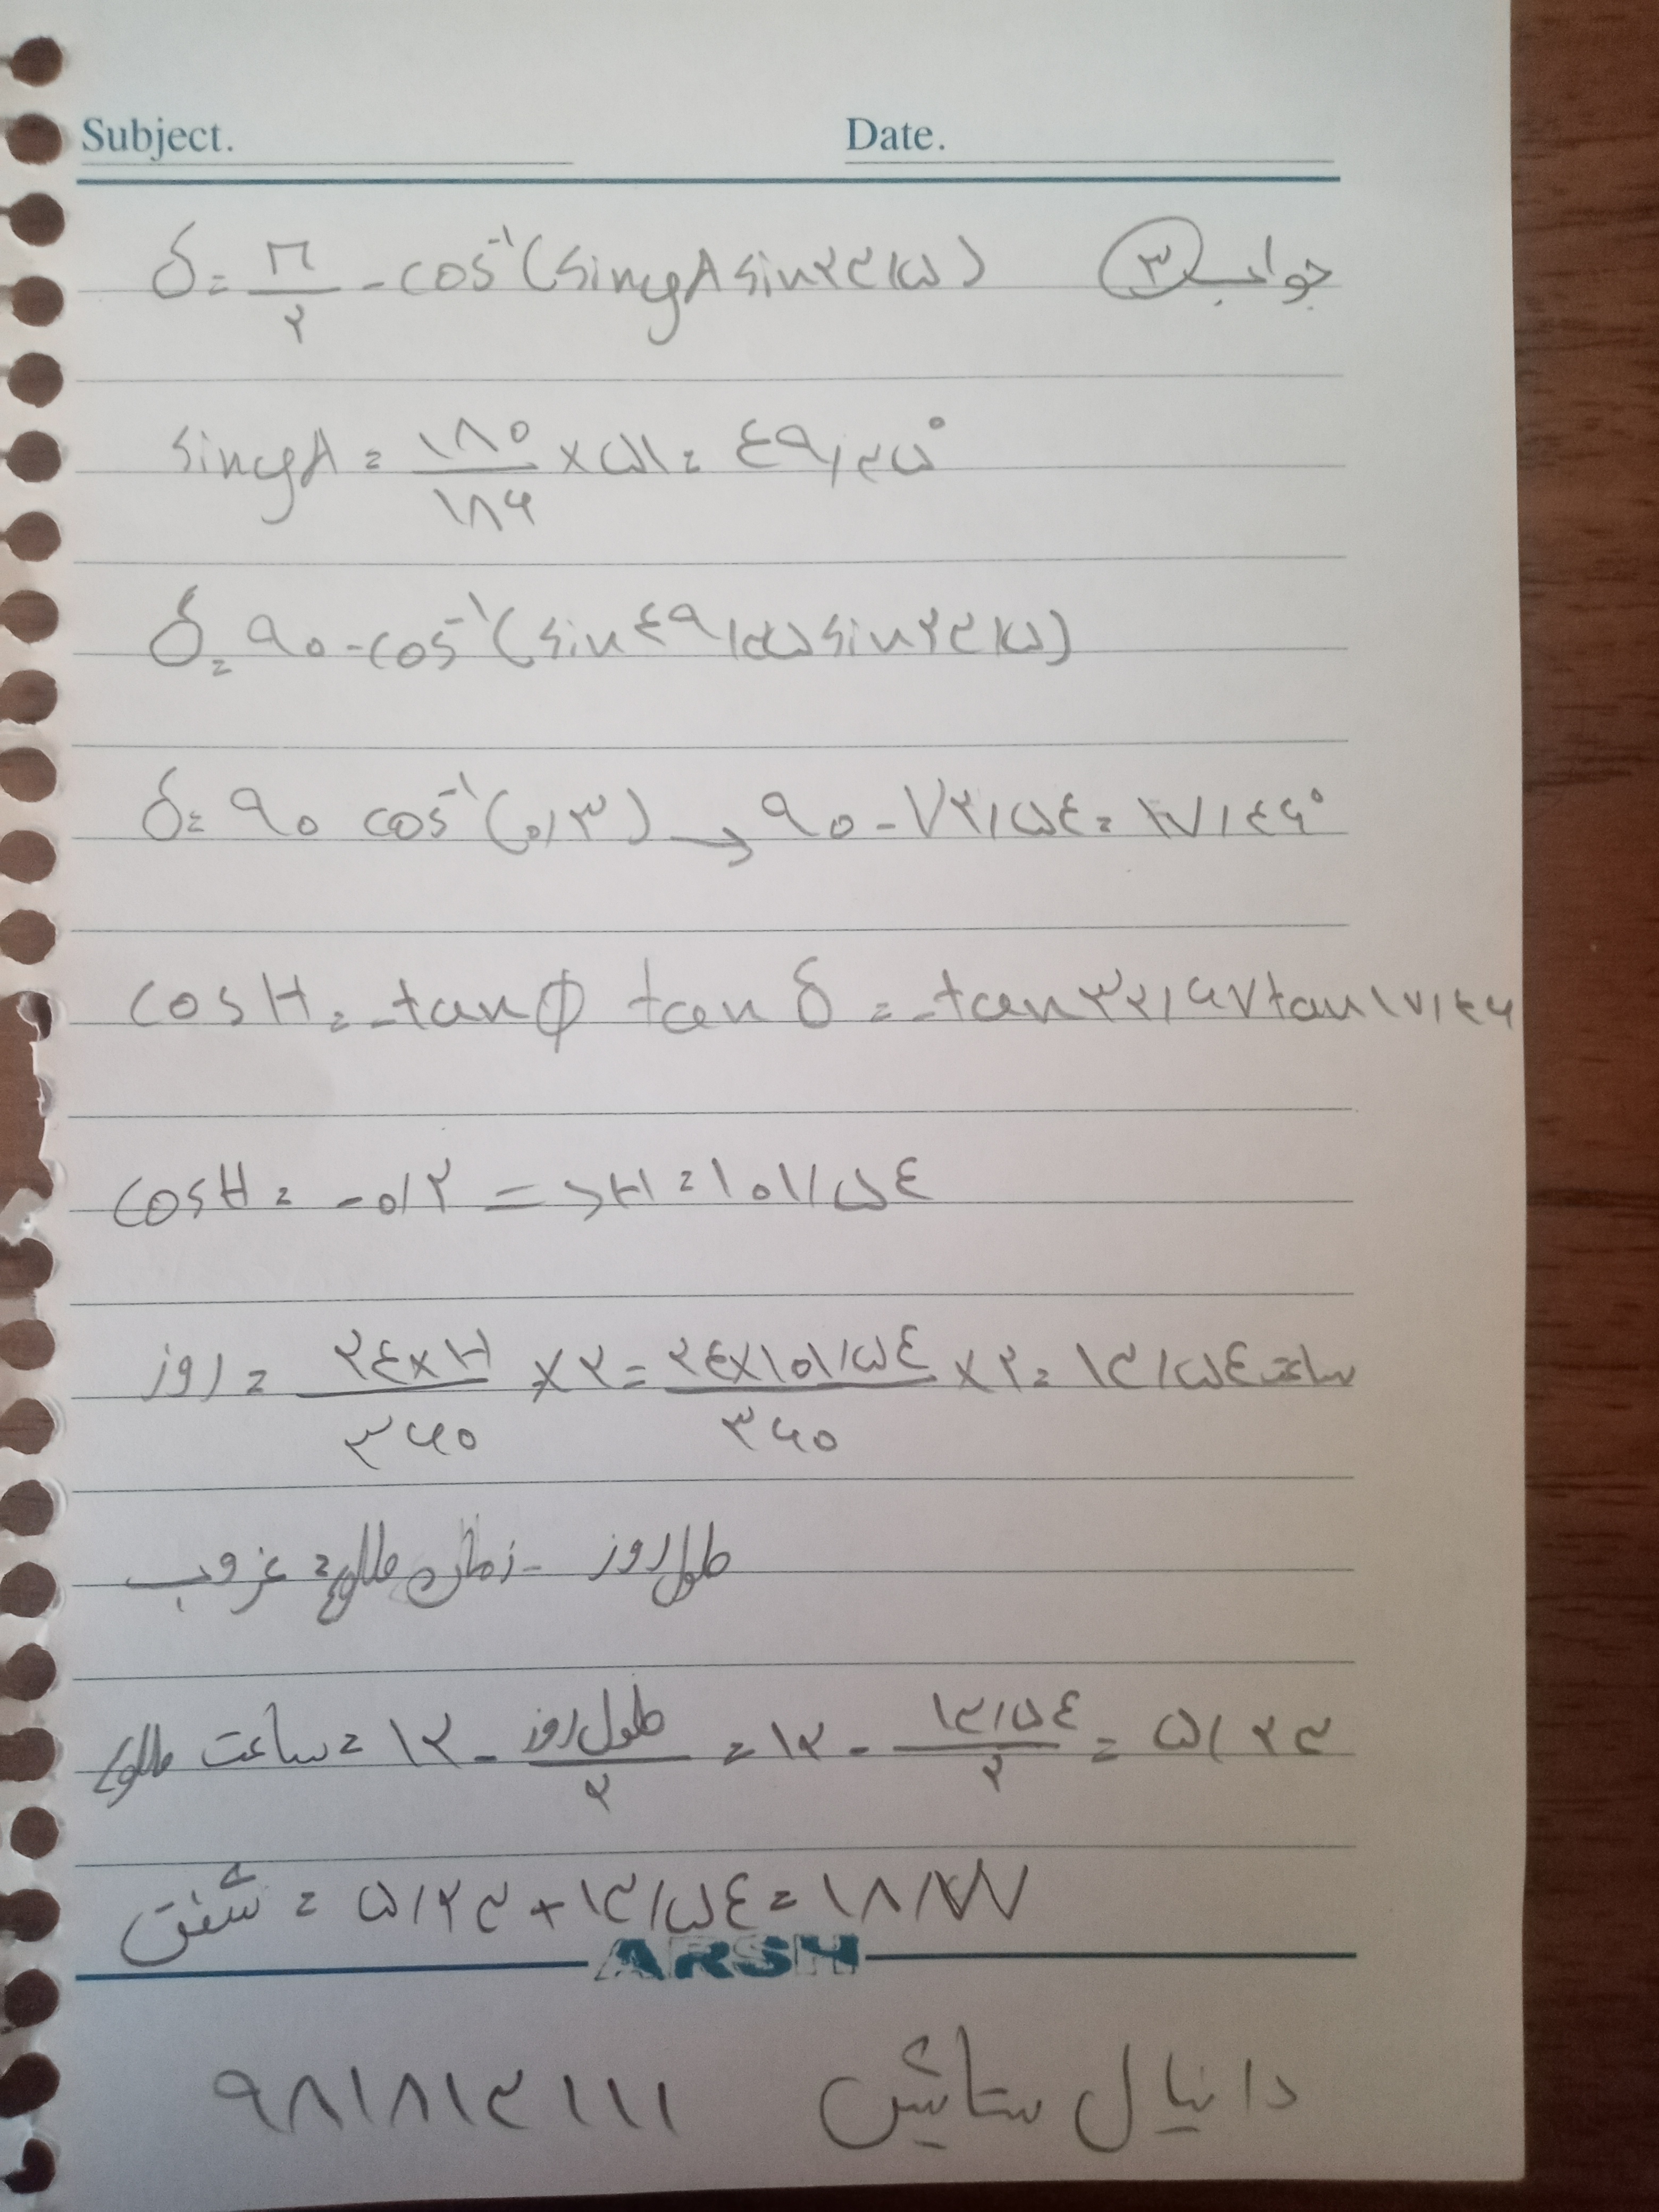 Subject.
Date.
جواب ۳
δ = π/۲ - cos⁻¹(singA sin ۲۳/۵)
singA = ۱۸۰/۱۸۶ × ۵۱ = ۴۹/۳۵°
δ = ۹۰ - cos⁻¹(sin ۴۹/۳۵ sin ۲۳/۵)
δ = ۹۰ cos⁻¹(۰/۳) → ۹۰ - ۷۲/۵۴ = ۱۷/۴۶°
cos H = -tan φ tan δ = -tan ۳۲/۶۷ tan ۱۷/۴۶
cos H = -۰/۲ => H = ۱۰۱/۵۴
روز = ۲۴×H/۳۶۰ ×۲ = ۲۴×۱۰۱/۵۴/۳۶۰ ×۲ = ۱۳/۵۴ ساعت
طول روز - زمان طلوع = غروب
ساعت طلوع = ۱۲ - طول روز/۲ = ۱۲ - ۱۳/۵۴/۲ = ۵/۲۳
شفق = ۵/۲۳ + ۱۳/۵۴ = ۱۸/۷۷
ARSH
دانیال ستایش ۹۸۱۸۱۳۱۱۱